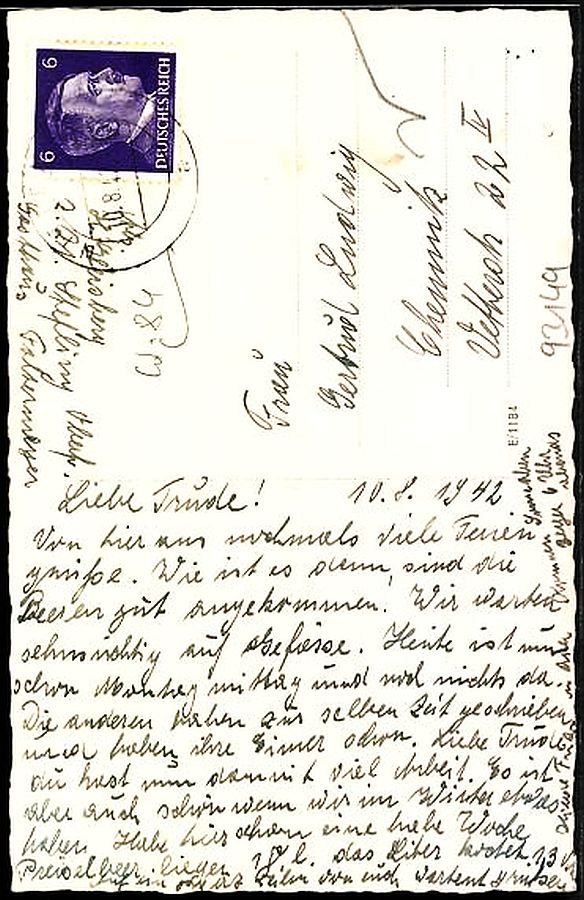 6 6
DEUTSCHES REICH
Frau
Gertrud Ludwig
Chemnitz
Vettersch 22 IV
93149
E/1184
W. 84
2. Zt. Oberf.
Gasthaus
Liebe Trude! 10.8.1942
Von hier aus nochmals viele Ferien
grüße. Wie ist es denn, sind die
Beeren gut angekommen. Wir warten
sehnsüchtig auf Gefässe. Heute ist nun
schon Montag mittag und noch nichts da.
Die anderen haben zur selben Zeit geschrieben
und haben ihre Eimer schon. Liebe Trude
du hast nun damit viel Arbeit. Es ist
aber auch schön wenn wir im Winter etwas
haben. Habe hier schon eine halbe Woche
Preiselbeer. liegen 18 l. das Liter kostet 13
Auf ein paar Zeilen von euch wartend grüßen
gegen 6 Uhr abends